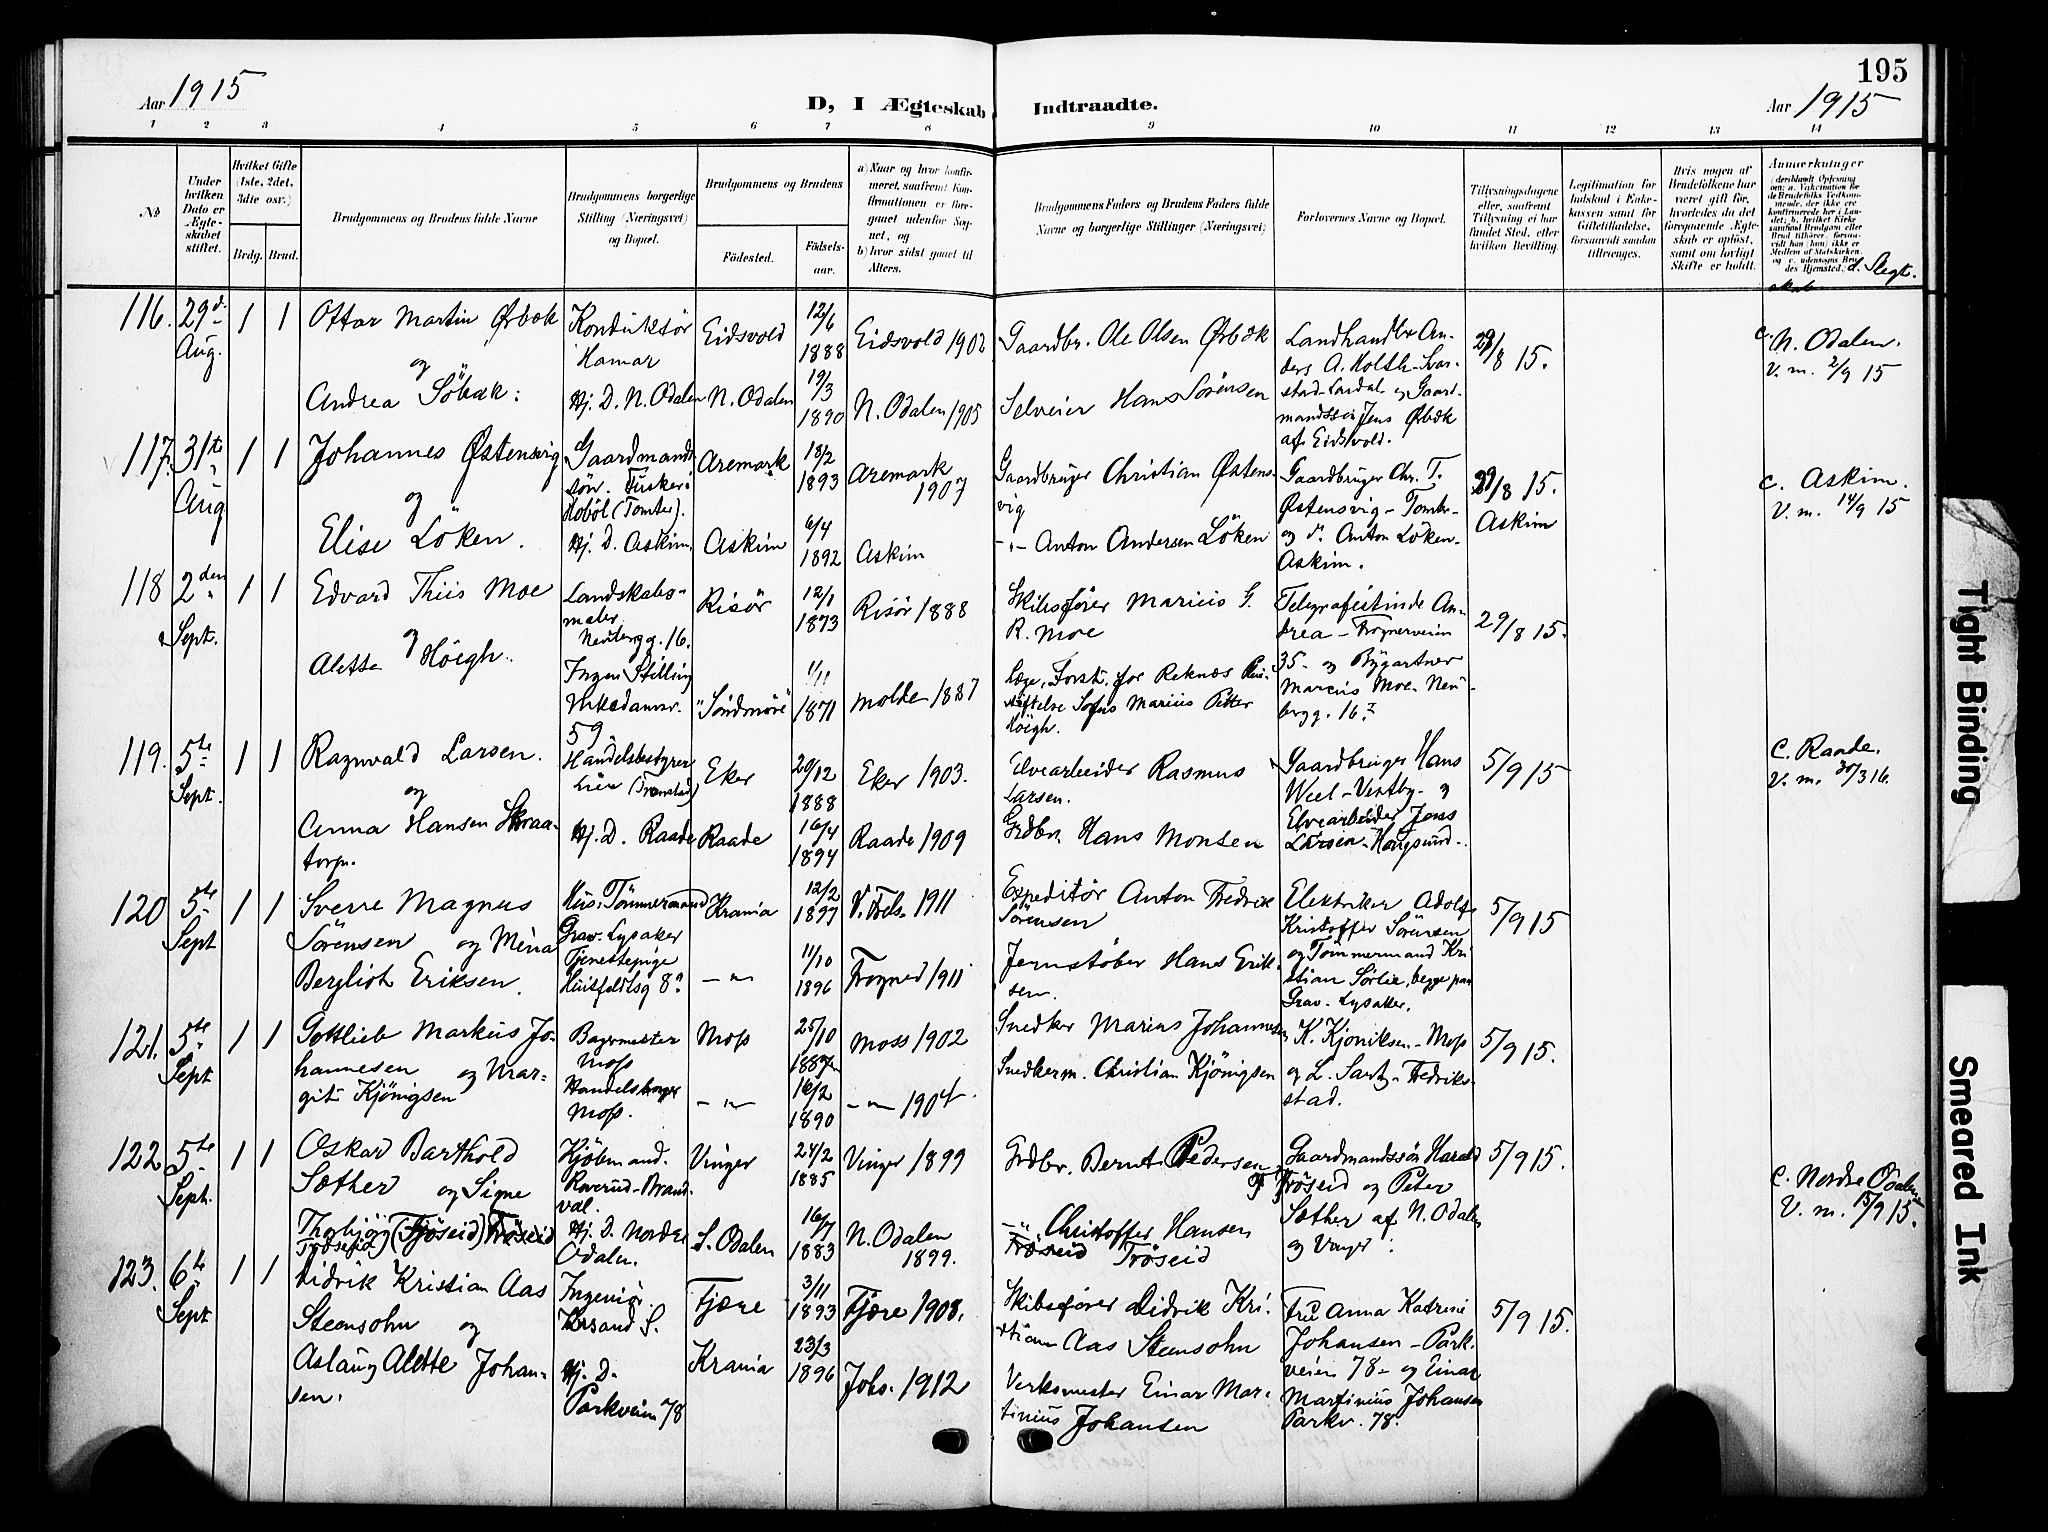 195
Aar 1915
D, I Ægteskab Indtraadte.
Aar 1915
1 2 3 4 5 6 7 8 9 10 11 12 13 14
No
Under hvilken Dato er Ægteskabet stiftet.
Hvilket Gifte (1ste, 2det, 3die osv.)
Brdg. Brud.
Brudgommens og Brudens fulde Navne
Brudgommens borgerlige Stilling (Næringsvei) og Bopæl.
Brudgommens og Brudens
Fødested.
Fødselsaar.
a) Naar og hvor konfirmeret, saafremt Konfirmationen er foregaaet udenfor Sognet, og
b) hvor sidst gaaet til Alters.
Brudgommens Faders og Brudens Faders fulde Navne og borgerlige Stillinger (Næringsvei)
Forlovernes Navne og Bopæl.
Tillysningsdagene eller, saafremt Tillysning ei har fundet Sted, efter hvilken Bevilling.
Legitimation for Indskud i Enkekassen samt for Giftetilladelse, forsaavidt saadan tiltrænges.
Hvis nogen af Brudefolkene har været gift før, hvorledes da det foregaaende Ægteskab er opløst, samt om lovligt Skifte er holdt.
Anmærkninger (deriblandt Oplysning om: a. Vakcination for de Brudefolks Vedkommende, der ikke ere konfirmerede her i Landet; b. hvilket Kirkesamfund Brudgom eller Brud tilhører, forsaavidt han (hun) ikke er Medlem af Statskirken, og c. udensogns Brudes Hjemsted.) d. Slegtskab
116. 29d. Aug. 1 1
Ottar Martin Ørbæk
og
Andrea Söbak:
Konduktör
Hamar
Hj. D. N. Odalen
Eidsvold
N. Odalen
12/6 1888
19/3 1890
Eidsvold 1902
N. Odalen 1905
Gaardbr. Ole Olsen Ørbæk
Selveier Hans Sörensen
Landhandler An-
ders A. Holth-
og Gaard-
mandssön Jens Ørbæk
af Eidsvold.
29/8 15.
c. N. Odalen.
V. m. 2/9 15
117. 31te Aug 1 1
Johannes Østensvig
og
Elise Löken.
Gaardmands
sön.
Höböl (Tomter).
Hj. D. Askim.
Aremark
Askim
18/2 1893
6/4 1892
Aremark
1907
Askim
Gaardbruger Christian Østens-
vig
-"- Anton Andersen Löken
Gaardbruger Chr. T.
Østensvig - Tomter
og do Anton Löken-
Askim.
29/8 15.
Askim
c. Askim.
V. m. 14/9 15
118 2den Sept. 1 1
Edvard Thiis Moe
og
Alette Höigh.
Landskabs-
maler
Neubergg. 16.
Ingen Stilling
59
Risör
"Söndmöre"
12/1 1873
1/11 1871
Risör 1888
Molde 1887
Skibsförer Marius G.
R. Moe
Læge, Forst. for Reknæs Plei-
estiftelse Sofus Marius Petter
Höigh.
Telegrafistinde An-
drea - Frognerveien
35- og Bygartner
Marius Moe- Neu-
bergg. 16.
29/8 15.
119. 5te Sept. 1 1
Ragnvald Larsen.
og
Anna Hansen Skraa-
torp.
Handelsbestyrer
Lier (Transtad)
Hj. D. Raade
Eker
Raade
29/12 1888
16/4 1894
Eker 1903.
Raade 1909
Elvearbeider Rasmus
Larsen.
Grdbr. Hans Monsen
Gaardbruger Hans
Weel - Vestby- og
Elvearbeider Jens
Larsen - Hougsund.
5/9 15
c. Raade.
V. m. 30/3 16.
120 5te Sept 1 1
Sverre Magnus
Sörensen og Mina
Bergliot Eriksen.
Hus-Tömmermand
Grav. Lysaker
Tjenestepige
Huitfeldtsg 8a
Krania
-"-
12/2 1897
11/10 1896
V. Frels. 1911
Frogner 1911
Expeditör Anton Fredrik
Sörensen
Jernstöber Hans Erik-
sen.
Elektriker Adolf
Kristoffer Sörensen
og Tömmermand Kri-
stian Sörlie, begge paa
Grav. Lysaker.
5/9 15
121. 5te Sept 1 1
Gottlieb Markus Jo-
hannesen og Mar-
git Kjönigsen
Bagermester
Moss
Moss.
Moss
-"-
25/10 1887
16/2 1890
Moss 1902
-"- 1904.
Snedker Marius Johannesen
Snedkerm. Christian Kjönigsen
K. Kjoniksen - Moss
og L. - Fredrik-
stad.
5/9 15.
122 5te Sept. 1 1
Oskar Barthold
Sæther og Signe
Thorbjörg (Tjöseid) Tröseid
Kjöbmand.
Roverud - Brand-
val.
Hj. D. Nordre
Odalen.
Vinger
S. Odalen
24/2 1885
16/7 1883
Vinger 1899
N. Odalen
1899.
Grdbr. Bernt Pedersen
-"- Christoffer Hansen
Tröseid
Gaardmandssön Harald
Tröseid og Peter
Sæther af N. Odalen
og Vinger.
5/9 15.
c. Nordre Odalen
V. m. 15/9 15.
123. 6te Sept 1 1
Didrik Kristian Aas
Steensohn og
Aslaug Alette Johan-
sen.
Ingeniör
Krsand S.
Hj. D.
Parkveien 78
Fjære
Krania
3/11 1893
23/3 1896
Fjære 1908.
Jobs. 1912
Skibsförer Didrik Kri-
stian Aas Steensohn
Verksmester Einar Mar-
tinius Johansen
Fru Anna Katrine
Johansen - Park-
veien 78- og Einar
Martinius Johansen
Parkv. 78.
5/9 15.
Tight Binding
Smeared Ink